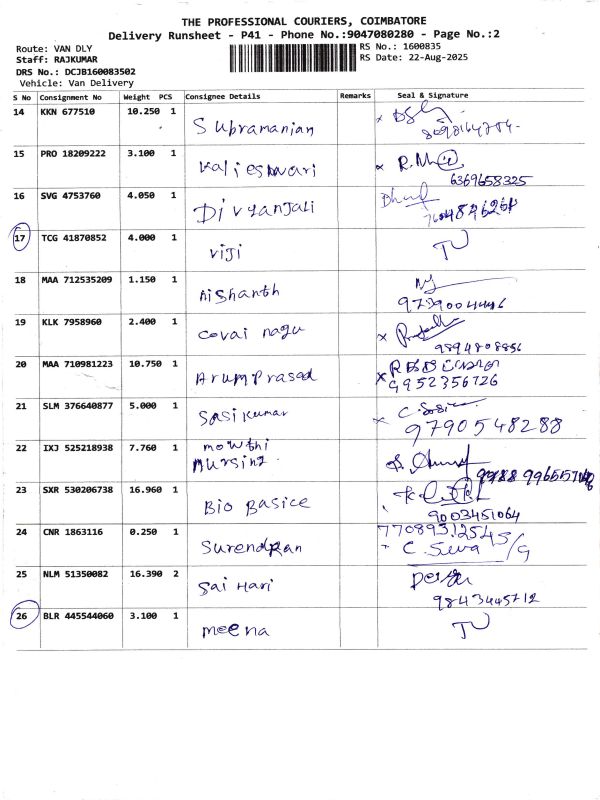 THE PROFESSIONAL COURIERS, COIMBATORE
Delivery Runsheet - P41 - Phone No.:9047080280 - Page No.:2
Route: VAN DLY
Staff: RAJKUMAR
DRS No.: DCJB160083502
Vehicle: Van Delivery
RS No.: 1600835
RS Date: 22-Aug-2025
S No Consignment No Weight PCS Consignee Details Remarks Seal & Signature
14 KKN 677510 10.250 1 Subramanian
15 PRO 18209222 3.100 1 Kalieswari
6369658325
16 SVG 4753760 4.050 1 Divyanjali
17 TCG 41870852 4.000 1 Viji
18 MAA 712535209 1.150 1 Aishanth
9739004446
19 KLK 7958960 2.400 1 Covai nagu
9894808856
20 MAA 710981223 10.750 1 ArumPrasad
9952356726
21 SLM 376640877 5.000 1 Sasikumar
97905 48288
22 IXJ 525218938 7.760 1 mowthi
Nursing
23 SXR 530206738 16.960 1 Bio Basice
9003451064
24 CNR 1863116 0.250 1 Surendran
7708931254
C. Siva
25 NLM 51350082 16.390 2 Sai Hari
9843445712
26 BLR 445544060 3.100 1 meena